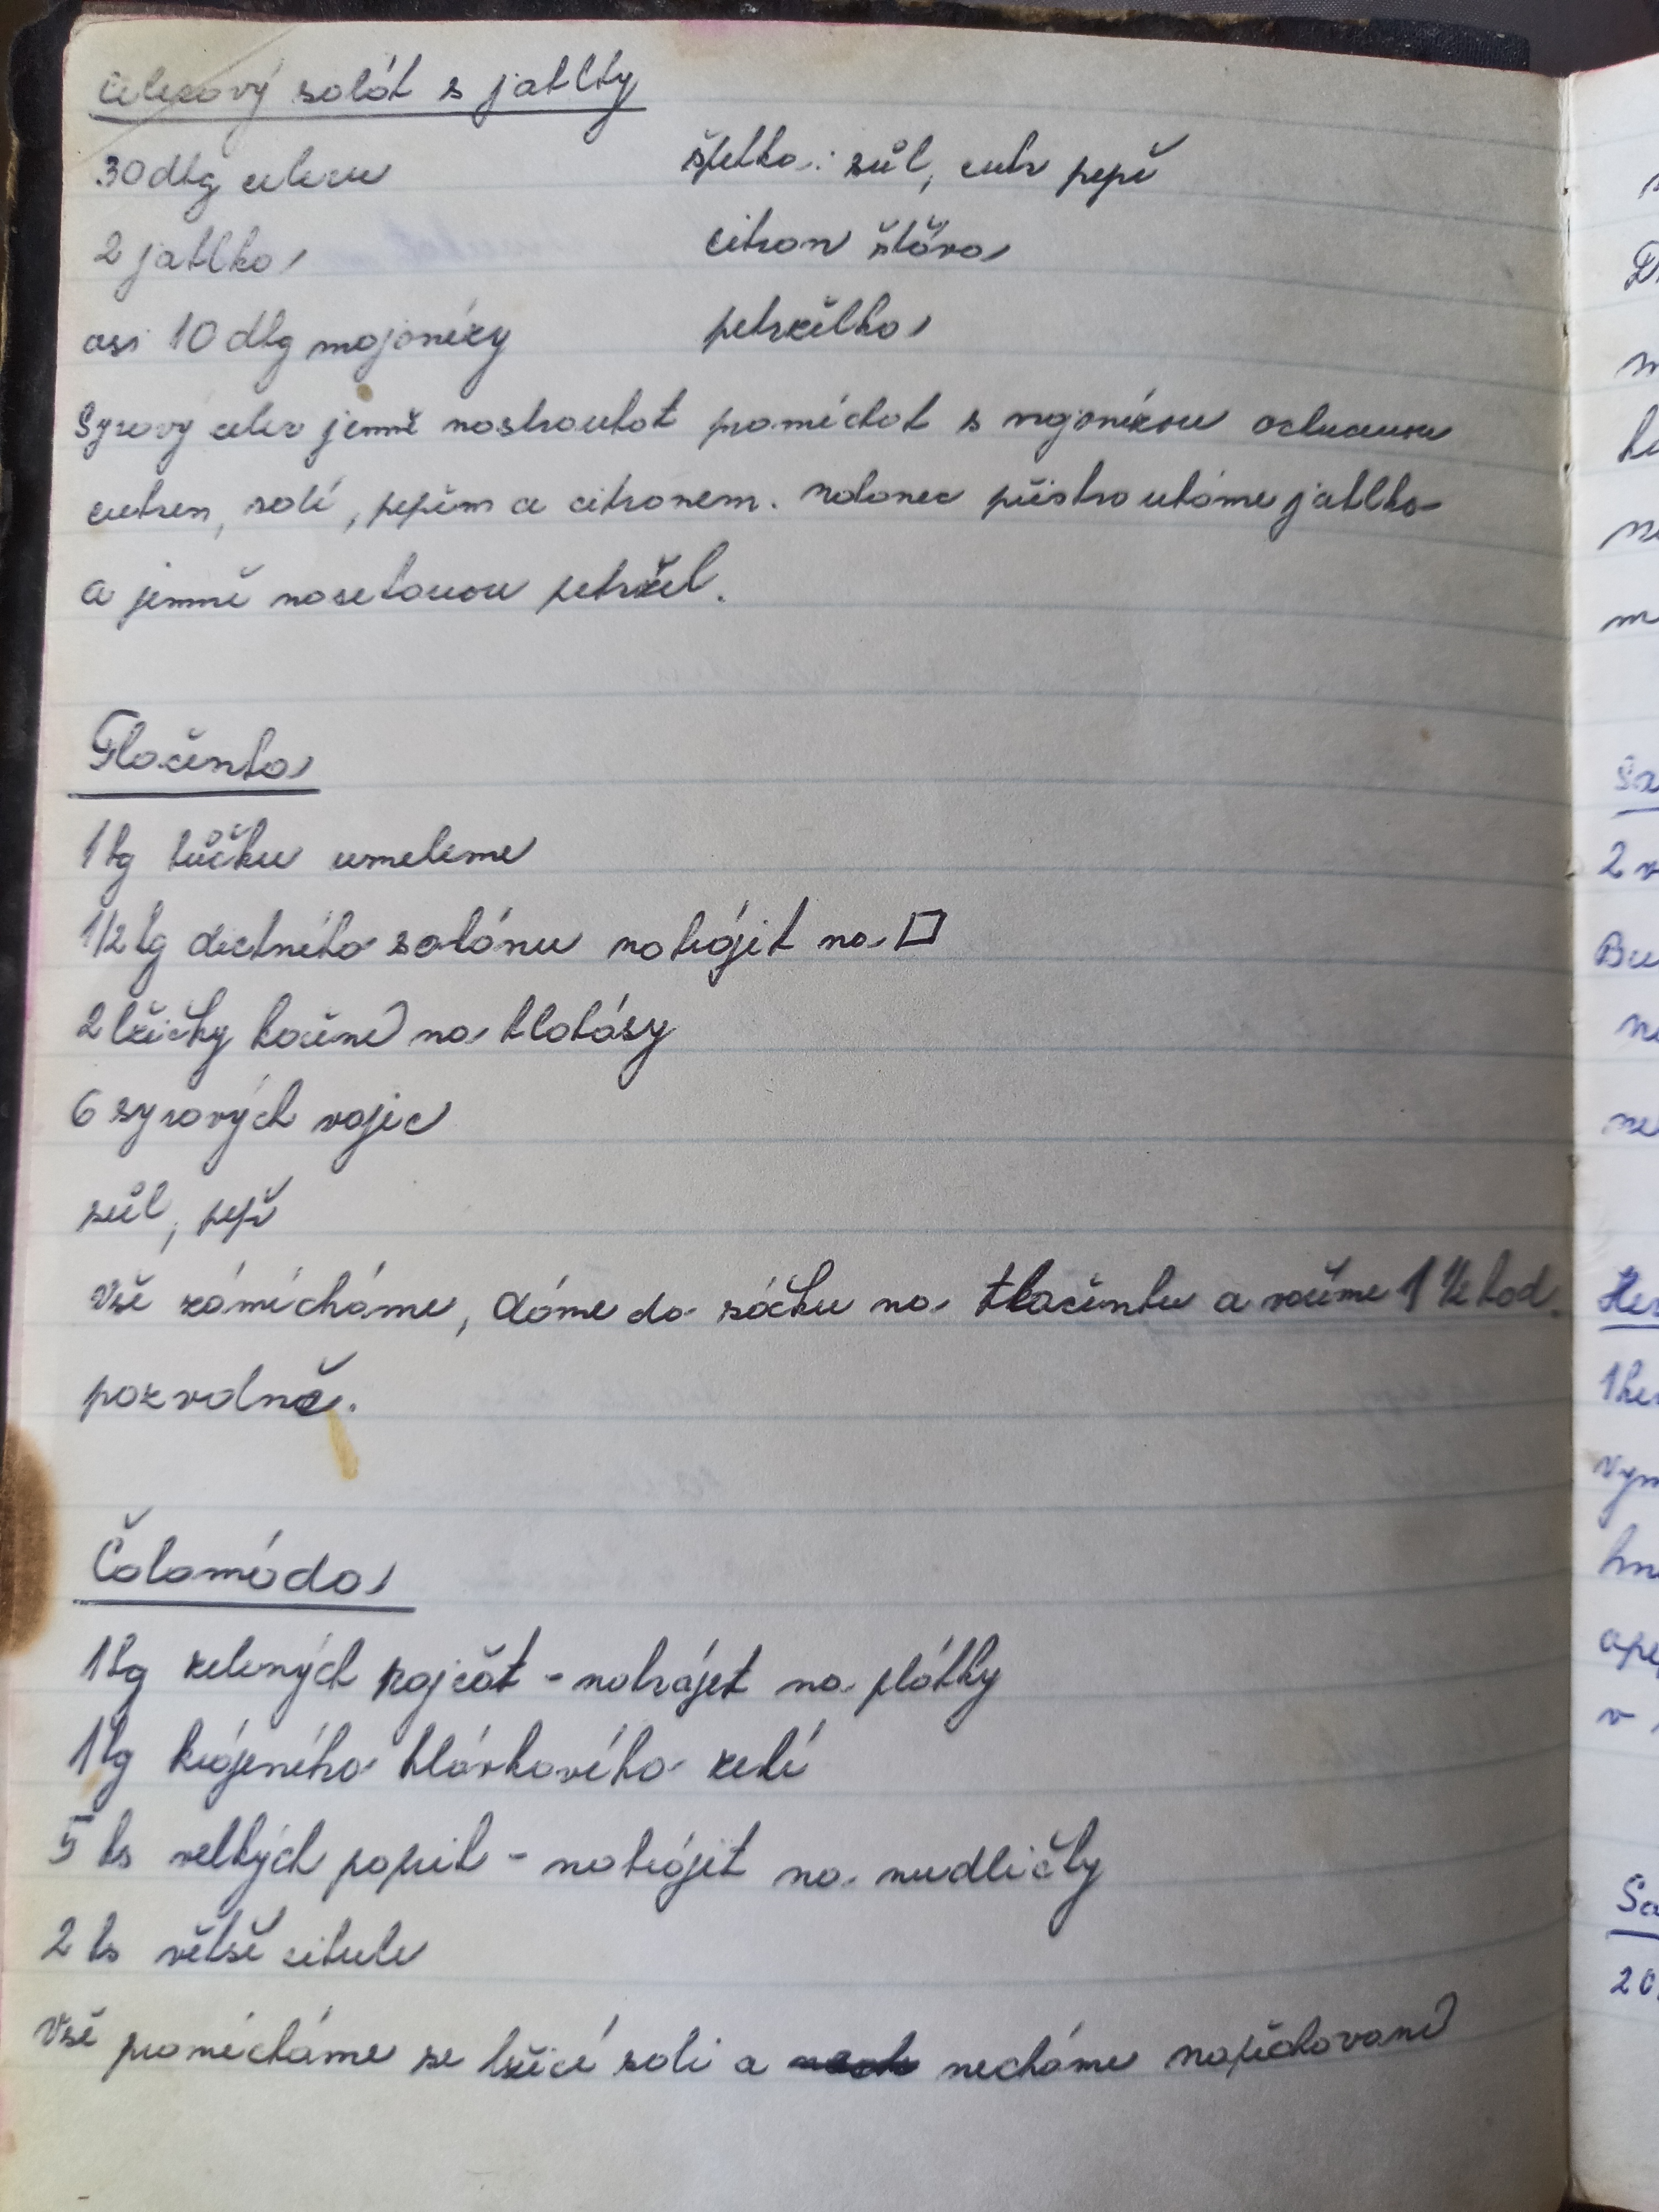 Celerový salát s jablky
30 dkg celeru
špetka: sůl, cukr pepř
2 jablka
citron šťáva
asi 10 dkg majonézy
petrželka
Syrový celer jemně nastrouhat promíchat s majonézou ochucenou
cukrem, solí, pepřem a citronem. Nakonec přistrouháme jablka
a jemně nasekanou petržel.
Tlačenka
1 kg bůčku umeleme
1/2 kg dietního salámu nakrájet na □
2 lžičky koření na klobásy
6 syrových vajec
sůl, pepř
Vše zamícháme, dáme do sáčku na tlačenku a vaříme 1 1/2 hod.
pozvolně.
Čalamáda
1 kg zelených rajčat - nakrájet na plátky
1 kg krájeného hlávkového zelí
5 ks velkých paprik - nakrájet na nudličky
2 ks větší cibule
Vše promícháme se lžící soli a necháme napěchované